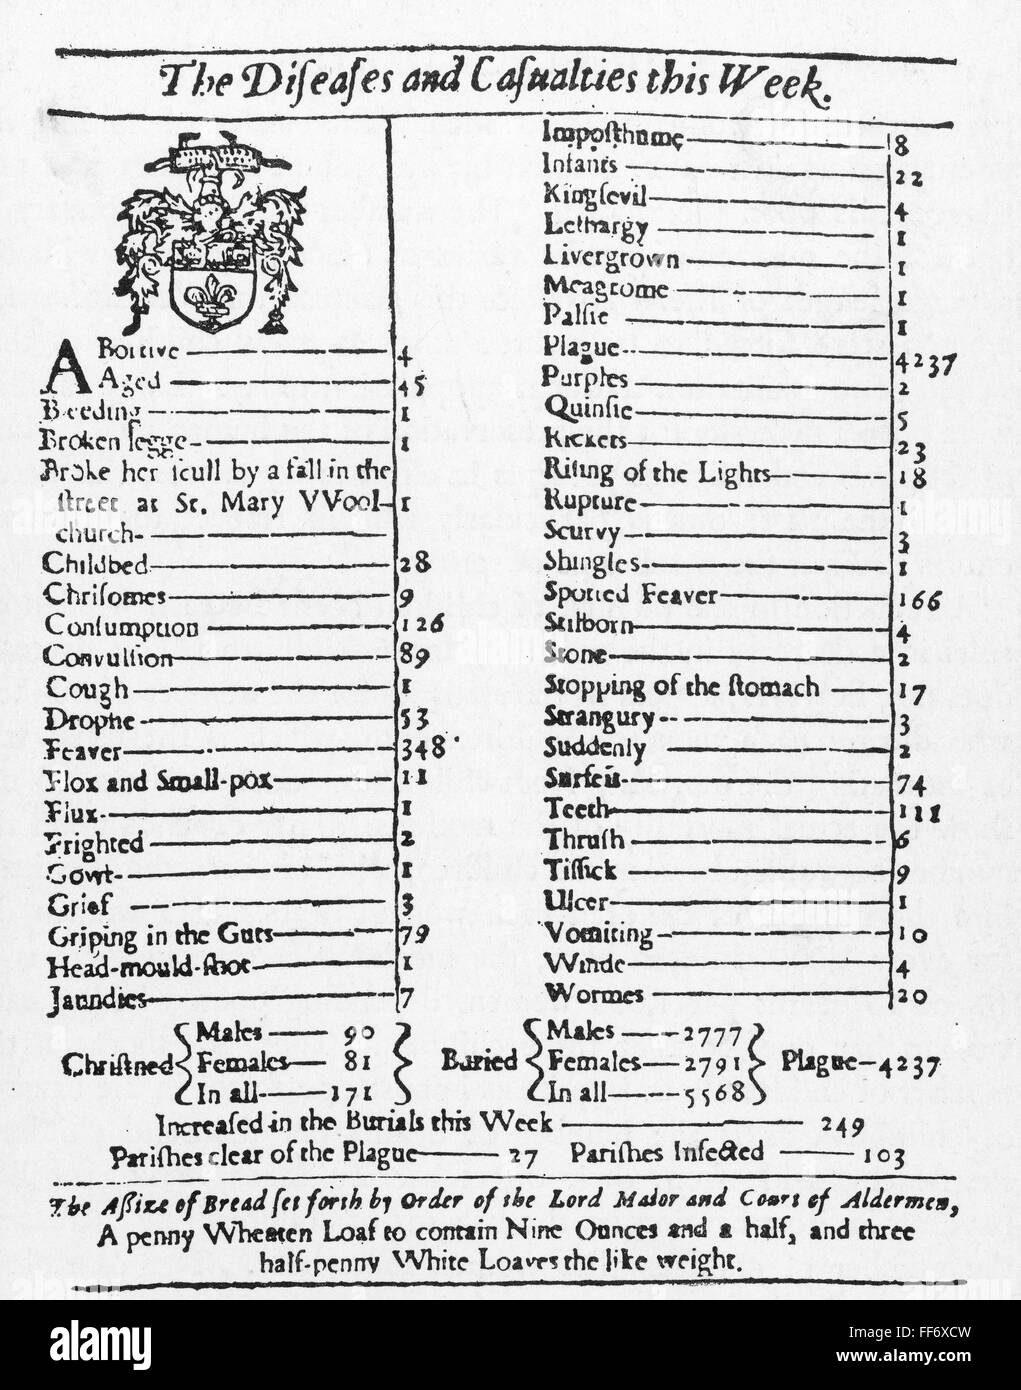 The Diſeaſes and Caſualties this Week.
ABortive 4
Aged 45
Bleeding 1
Broken legge 1
Broke her ſcull by a fall in the
ſtreet at St. Mary VVool- 1
church-
Childbed 28
Chriſomes 9
Conſumption 126
Convulſion 89
Cough 1
Dropſie 53
Feaver 348
Flox and Small-pox 11
Flux 1
Frighted 2
Gowt 1
Grief 3
Griping in the Guts 79
Head-mould-ſhot 1
Jaundies 7
Impoſthume 8
Infants 22
Kingſevil 4
Lethargy 1
Livergrown 1
Meagrome 1
Palſie 1
Plague 4237
Purples 2
Quinſie 5
Rickets 23
Riſing of the Lights 18
Rupture 1
Scurvy 3
Shingles 1
Spotted Feaver 166
Stilborn 4
Stone 2
Stopping of the ſtomach 17
Strangury 3
Suddenly 2
Surfeit 74
Teeth 111
Thruſh 6
Tiſſick 9
Ulcer 1
Vomiting 10
Winde 4
Wormes 20
Chriſtned { Males 90 Females 81 In all 171 }
Buried { Males 2777 Females 2791 In all 5568 } Plague 4237
Increaſed in the Burials this Week 249
Pariſhes clear of the Plague 27 Pariſhes Infected 103
The Aſſize of Bread ſet forth by Order of the Lord Maior and Court of Aldermen,
A penny Wheaten Loaf to contain Nine Ounces and a half, and three
half-penny White Loaves the like weight.
alamy
alamy stock photo
FF6XCW
www.alamy.com